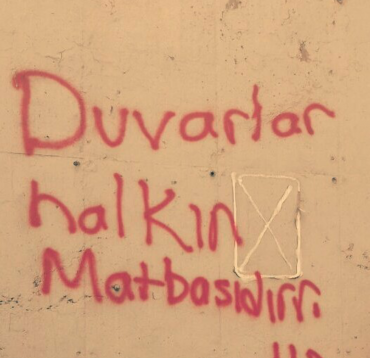 Duvarlar
halkın
Matbasıdır.